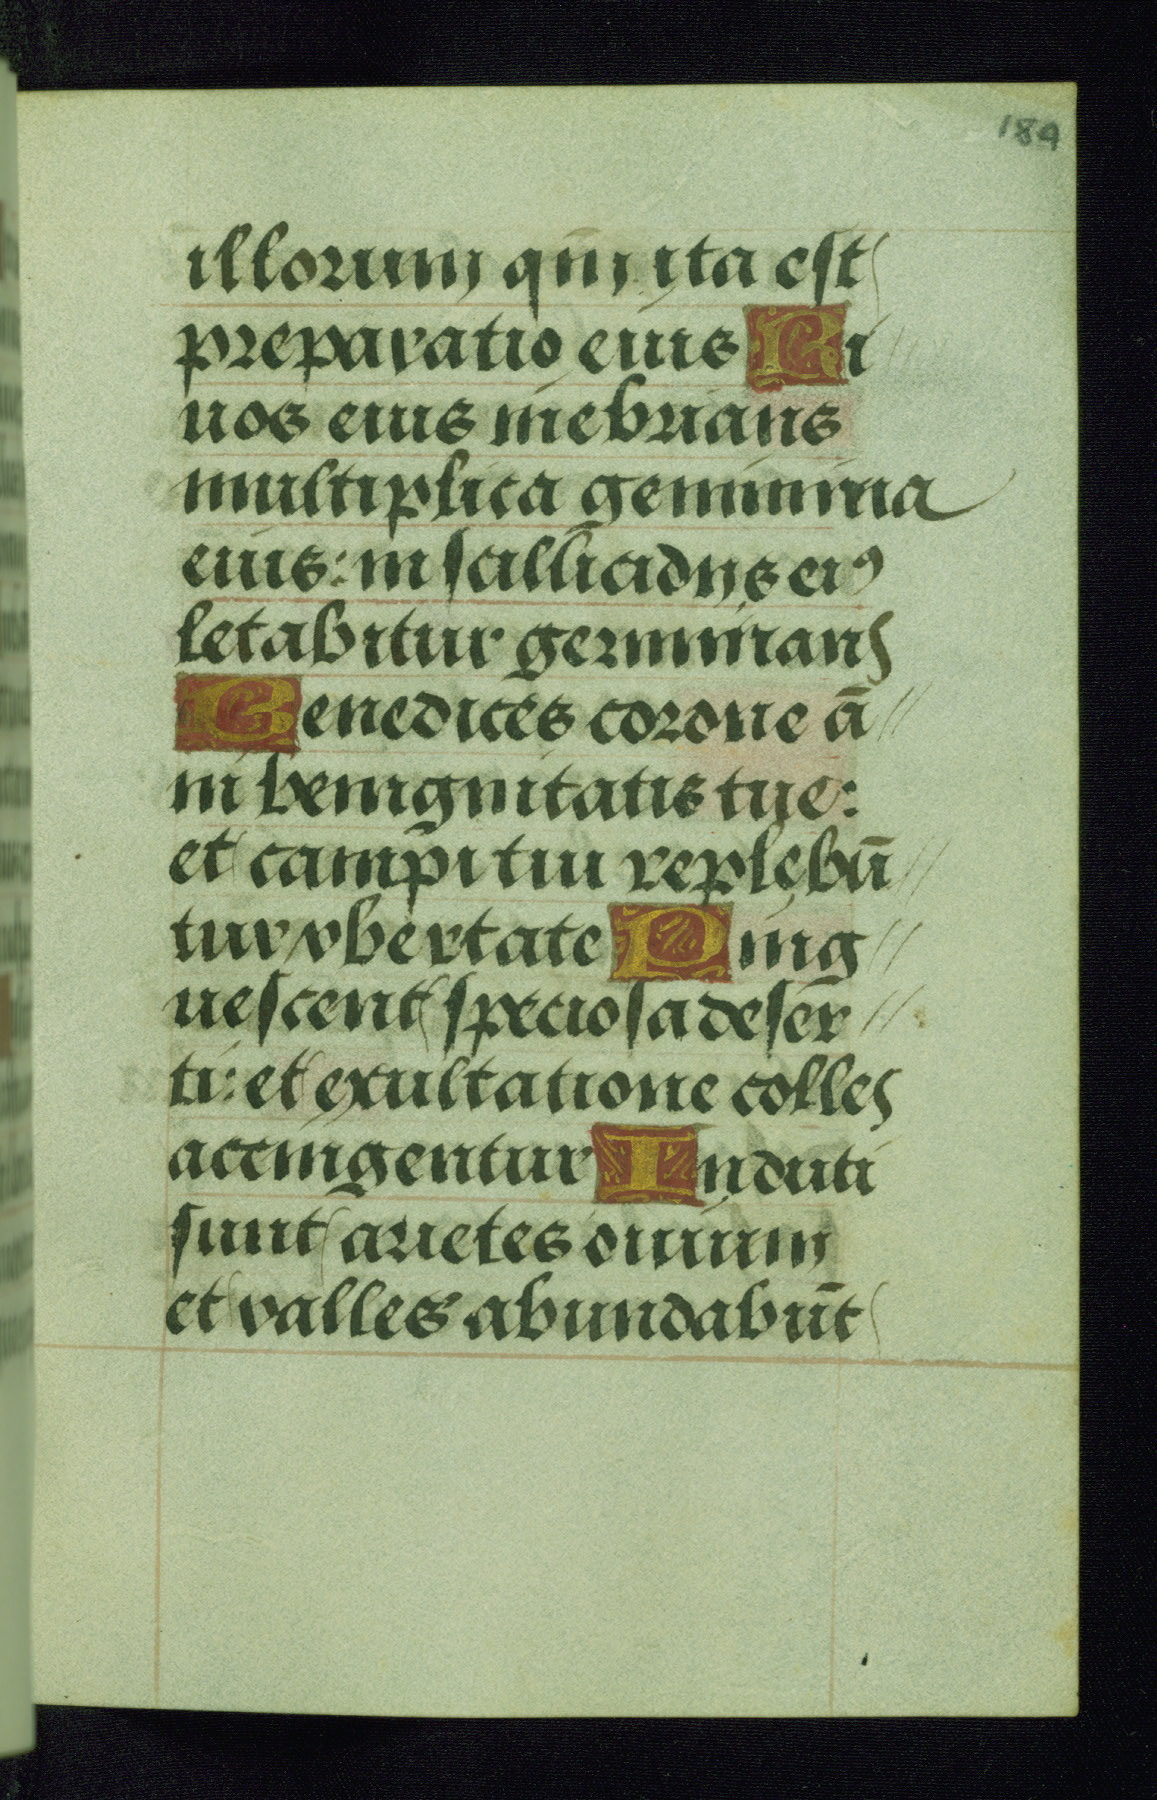 184
illorum qm̄ ita est
preparatio eius Ri
uos eius inebrians
multiplica genimina
eius: in stillicidijs eiꝰ
letabitur germinans
Benedices corone ā
ni benignitatis tue:
et campi tui replebū
tur vbertate Ping
uescent speciosa deser
ti: et exultatione colles
accingentur Induti
sunt arietes ouium
et valles abundabūt